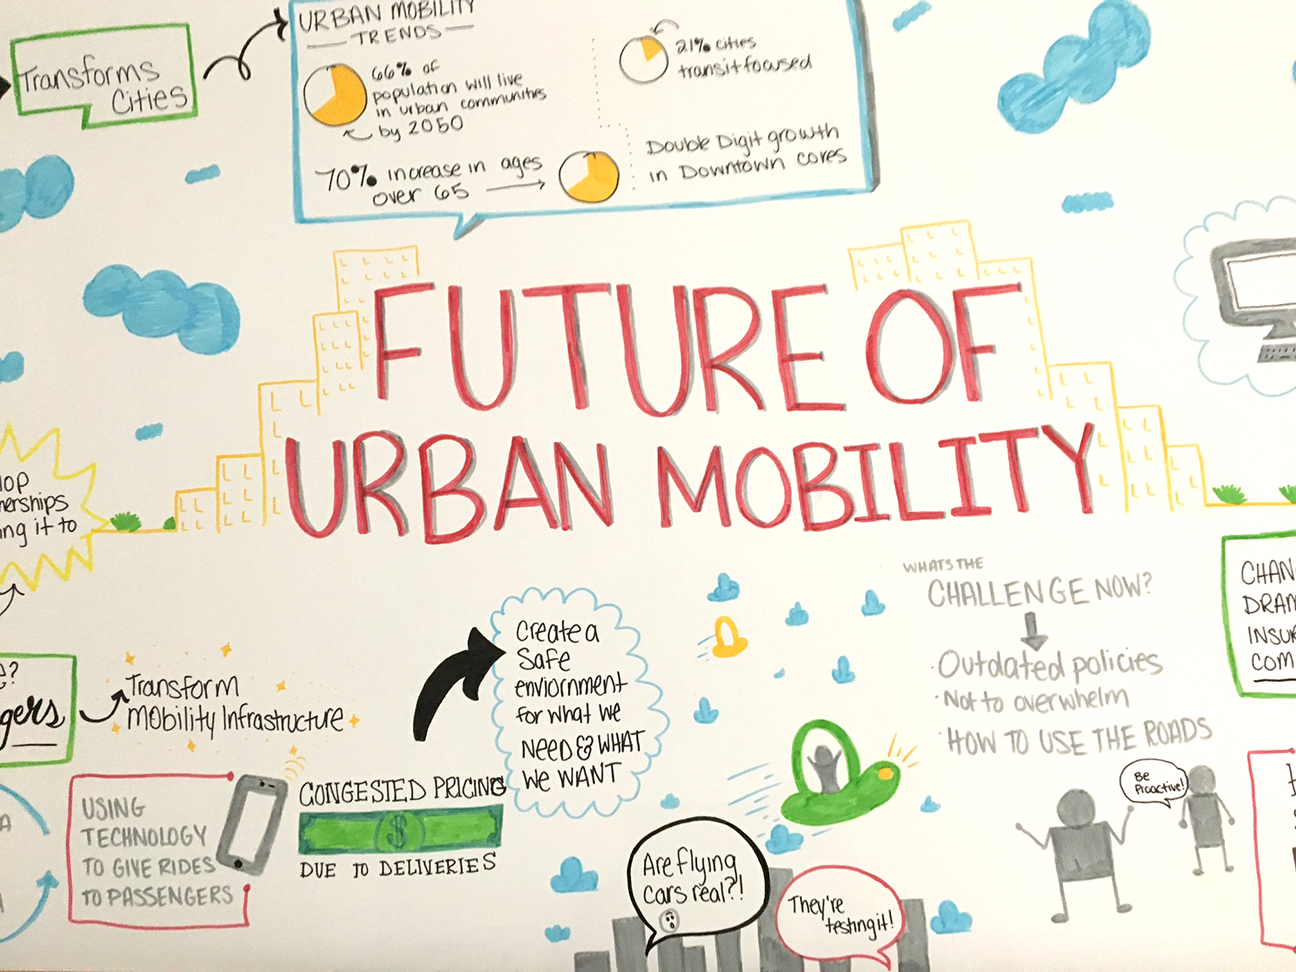 Transforms
Cities
URBAN MOBILITY
TRENDS
66% of
population will live
in urban communities
by 2050
21% cities
transit focused
70% increase in ages
over 65
Double Digit growth
in Downtown cores
FUTURE OF
URBAN MOBILITY
ing it to
Transform
Mobility Infrastructure
USING
TECHNOLOGY
TO GIVE RIDES
TO PASSENGERS
CONGESTED PRICING
$
DUE TO DELIVERIES
Create a
Safe
enviornment
for what we
NEED & WHAT
WE WANT
WHATS THE
CHALLENGE NOW?
· Outdated policies
· Not to overwhelm
· HOW TO USE THE ROADS
Be
Proactive!
Are flying
cars real?!
They're
testng it!